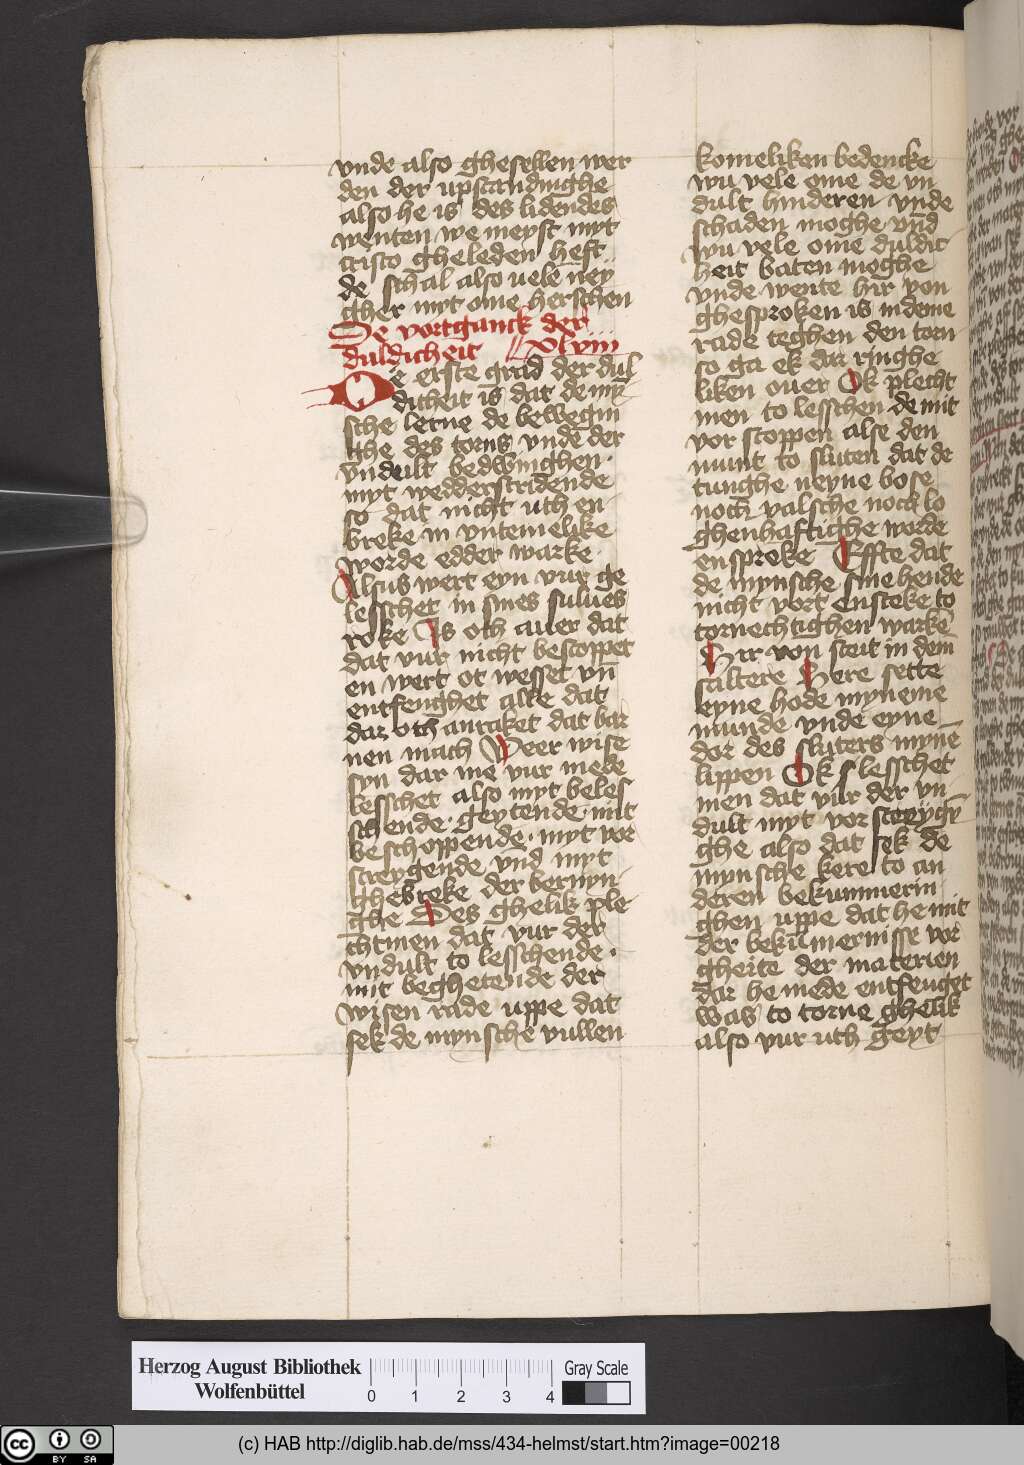 vnde also ghesellen wer
den der upstandinghe
also he is des lidendes
wenten we meyst myt
cristo gheleden heft
de schal also uele ney
gher myt ome herschen
De vortganck der
duldicheit xlviii
De erste grad der dul
dicheit is dat de my
sche lerne de bewegin
ghe des torns vnde der
vndult bedwinghen·
myt wedderstridende
so dat nicht uth en
breke in vntemelike
worde edder warke·
Alsus wert eyn vur ge
lesschet in sines sulues
roke Is och auer dat
dat vur nicht bestoppet
en wert ot wesset vn̄
entfenghet alle dat
dar oth anraket dat bar
nen mach Weer wise
syn dar me vur mede
lesschet also myt beles
schende· geytende· mit
beschoppende· myt vor
streygende vnd myt
ghebreke der bernyn
ghe Des ghelik ple
chtmen dat vur der
vndult to lesschende·
mit beghetende der
wisen rade uppe dat
sek de mynsche vullen
komeliken bedencke
wu vele ome de vn
dult hinderen vnde
schaden moghe vnd
wu vele ome duldic
heit baten moghe
vnde wente hir von
ghesproken is in deme
rade teghen den torn
so ga ek dar ringhe
liken ouer Ok plecht
men to lesschen de mit
vor stoppen alse den
munt to sluten dat de
tunghe neyne bose
noch valsche noch lo
ghenhaftighe worde
en sproke Effte dat
de mynsche sine hende
nicht vort enstreke to
tornechtighen warke
Hir von steit in dem
saltere Here sette
eyne hode myneme
munde vnde eyne
dor des sluters myne
lippen Ok slesschet
men dat vur der vn
dult myt vor streyge
ghe also dat sek de
mynsche kere to an
deren bekummerin
ghen uppe dat he mit
der bekumernisse vor
gheite der materien
dar he mede entfenget
was to torne ghelik
also vur uth geyt
Herzog August Bibliothek
Wolfenbüttel
0 1 2 3 4
Gray Scale
cc BY SA
(c) HAB http://diglib.hab.de/mss/434-helmst/start.htm?image=00218